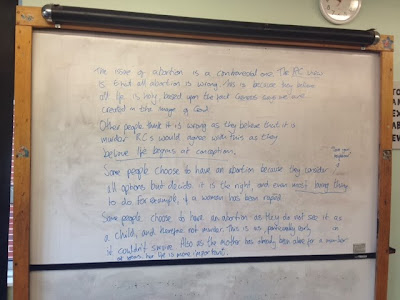 The issue of abortion is a controversial one. The RC view
is that all abortion is wrong. This is because they believe
all life is holy, based upon the fact Genesis says we are
created in the image of God.
Other people think it is wrong as they believe that it is
murder. RC's would agree with this as they
believe life begins at conception.
Some people choose to have an abortion because they consider
all options but decide it is the right, and even most loving thing
to do. For example, if a woman has been raped.
Some people choose to have an abortion as they do not see it as
a child, and therefore not murder. This is as, particularly early
it couldn't survive. Also as the mother has already been alive for a number
of years, her life is more important.